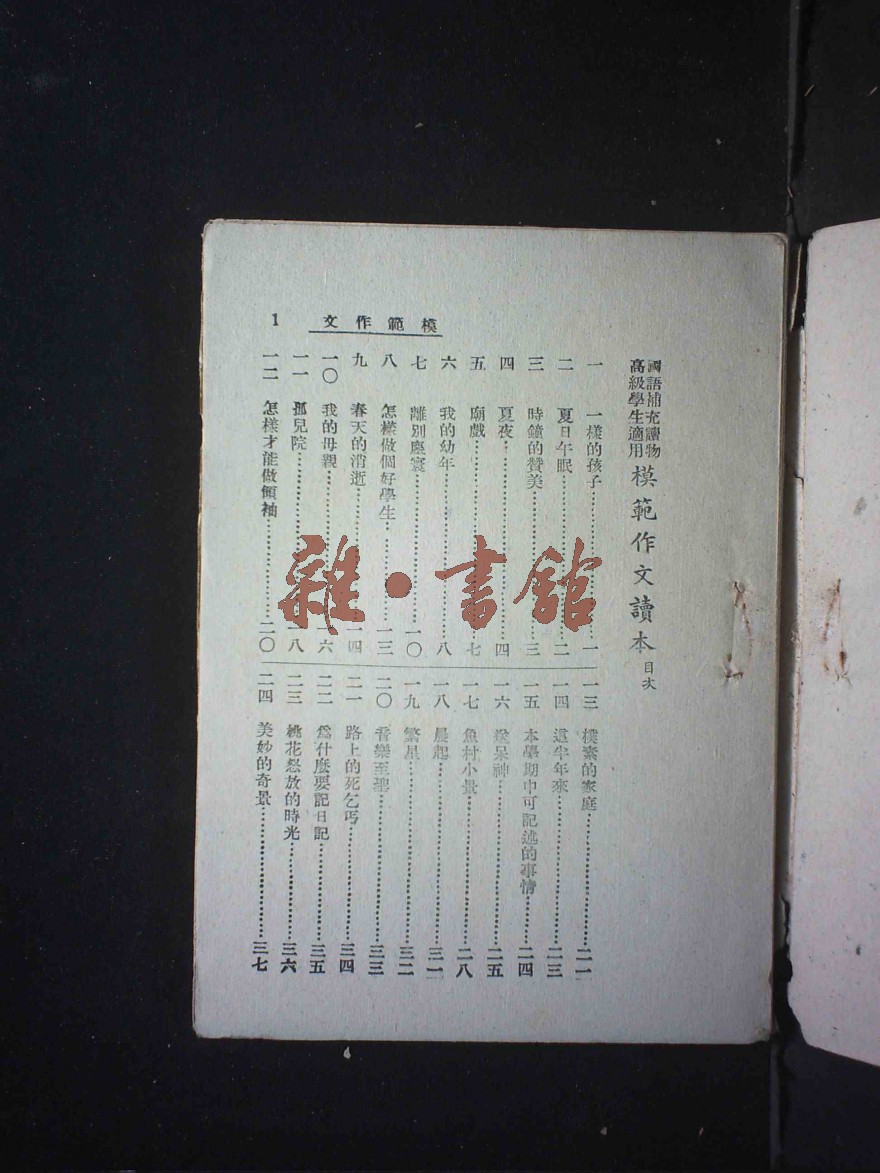 國語補充讀物
高級學生適用
模範作文讀本 目次
一 一樣的孩子 一
二 夏日午眠 二
三 時鐘的贊美 三
四 夏夜 四
五 廟戲 七
六 我的幼年 八
七 離別塵寰 一〇
八 怎樣做個好學生 一三
九 春天的消逝 一四
一〇 我的母親 一六
一一 孤兒院 一八
一二 怎樣才能做領袖 二〇
一三 樸素的家庭 二一
一四 這半年來 二三
一五 本學期中可記述的事情 二四
一六 呆神 二五
一七 魚村小景 二八
一八 晨起 三一
一九 繁星 三二
二〇 音樂至聖 三三
二一 路上的死乞丐 三四
二二 爲什麼要記日記 三五
二三 桃花怒放的時光 三六
二四 美妙的奇景 三七
模範作文
1
雜·書館